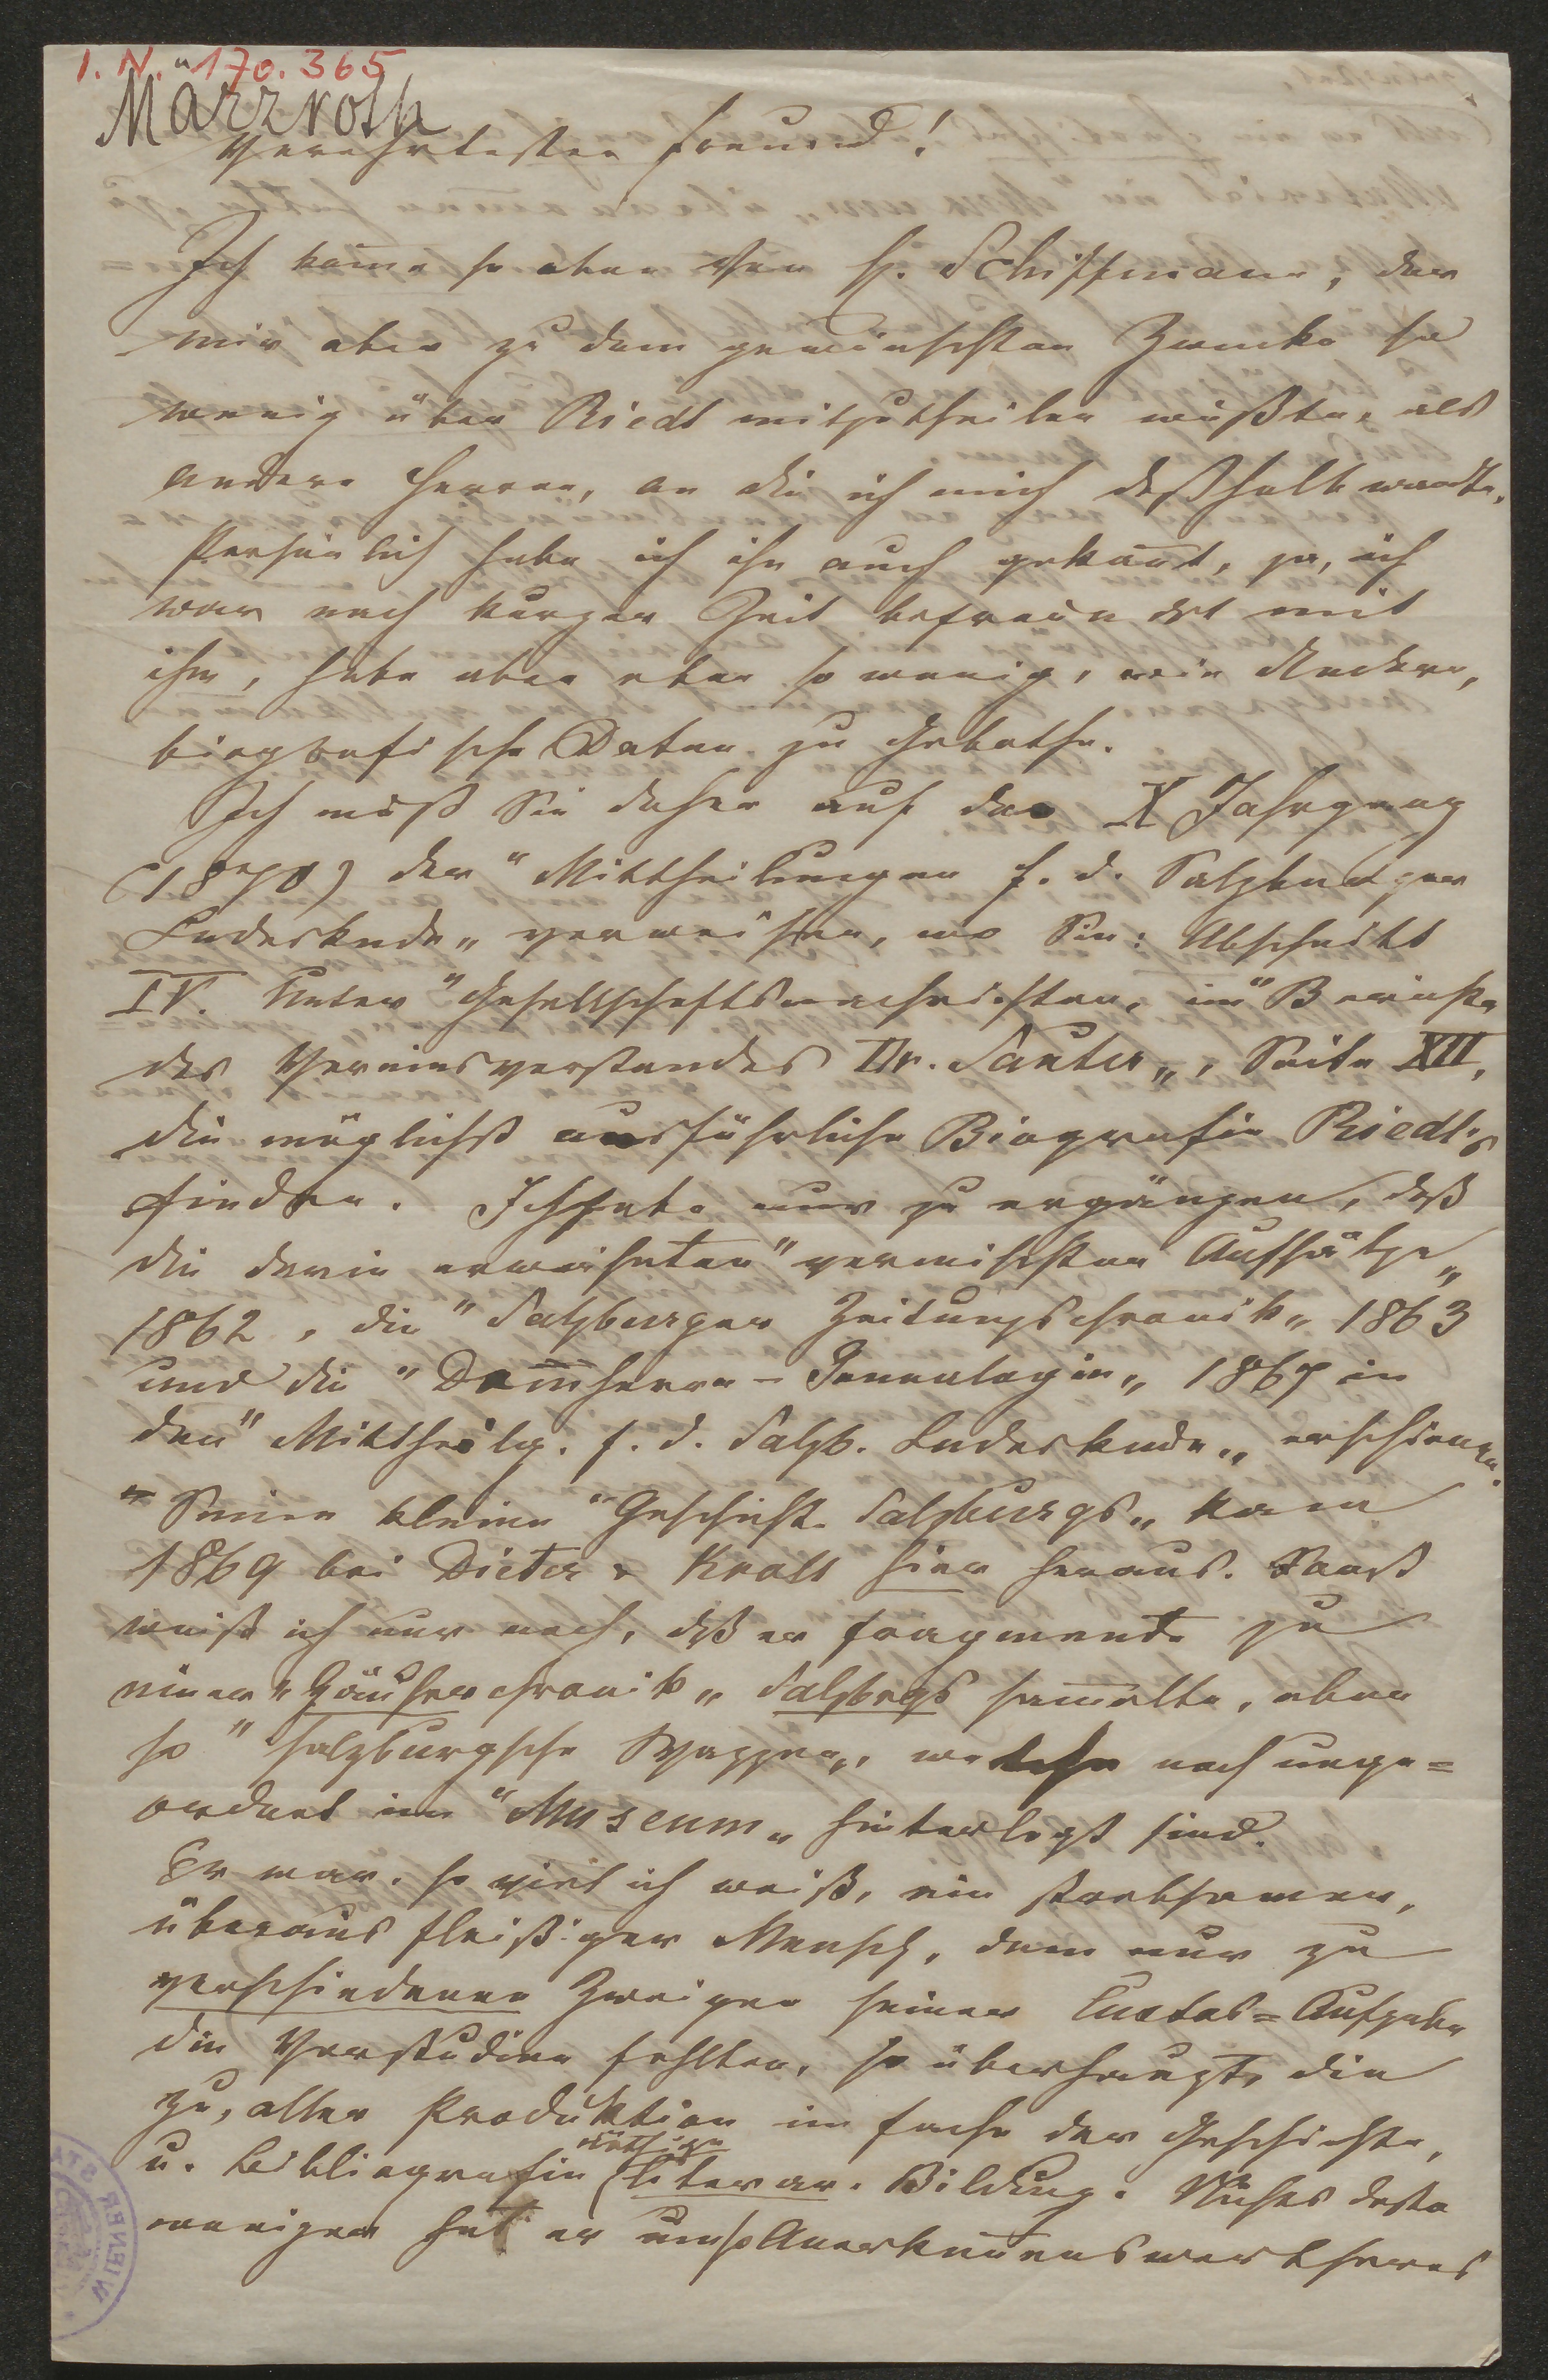 I. N. 170.365
Märzroth
Verehrtester Freund!
Ich kom̅e so eben von H. Schiffmann, der
mir aber zu dem gewünschten Zwecke so
wenig über Riedl mitzutheilen wußte, als
andere Herren, an die ich mich deßhalb wandte.
Persönlich habe ich ihn auch gekan̅t, ja, ich
war nach kurzer Zeit befreundet mit
ihm, habe aber eben so wenig, wie Andere,
biografische Daten zu Gebothe.
Ich muß Sie daher auf den X Jahrgang
(1870) der "Mittheilungen f. d. Salzburger
Landeskunde„ verweisen, wo Sie: Abschnitt
IV. Unter "Gesellschaftsnachrichten, im "Berichte
des Vereinsvorstandes Dr. Sauter„, Seite XII,
die möglichst ausführliche Biografie Riedl's
finden. Ich habe nur zu ergänzen, daß
die darin erwähnten "vermischten Aufsätze„
1862, die "Salzburger Zeitungschronik„ 1863
und die "Domherrn-Genealogie„ 1867 in
den "Mittheilg. f. d. Salzb. Landeskunde„ erschienen.
Seine kleine "Geschichte Salzburgs„ kam
1869 bei Dieter & Kroll hier heraus. Sonst
weiß ich nur noch, daß er Fragmente zu
einer "Häuserchronik„ Salzbrgs sam̅elte, eben
so "salzburgsche Wappen„, welche noch unge=
ordnet im "Museum„ hinterlegt sind.
Er war, so viel ich weiß, ein strebsamer,
überaus fleißiger Mensch, dem nur zu
verschiedenen Zweigen seiner Aufgabe
die Vorstudien fehlten, so überhaupt, die
zu, aller Produktion im Fache der Geschichte,
nöthige
u. Bibliografie literar. Bildung. Nichts desto
weniger hat er umso Anerkennenswertheres
WIENER